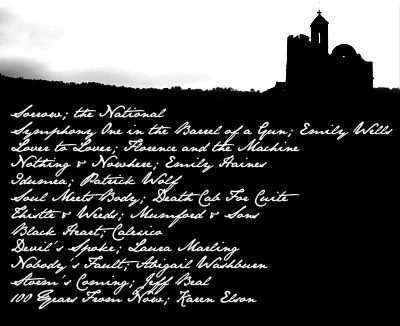 Sorrow; the National
Symphony One in the Barrel of a Gun; Emily Wells
Lover to Lover; Florence and the Machine
Nothing & Nowhere; Emily Haines
Idumea; Patrick Wolf
Soul Meets Body; Death Cab For Cuite
Thistle & Weeds; Mumford & Sons
Black Heart; Calexico
Devil's Spoke; Laura Marling
Nobody's Fault; Abigail Washburn
Storm's Coming; Jeff Beal
100 Years From Now; Karen Elson